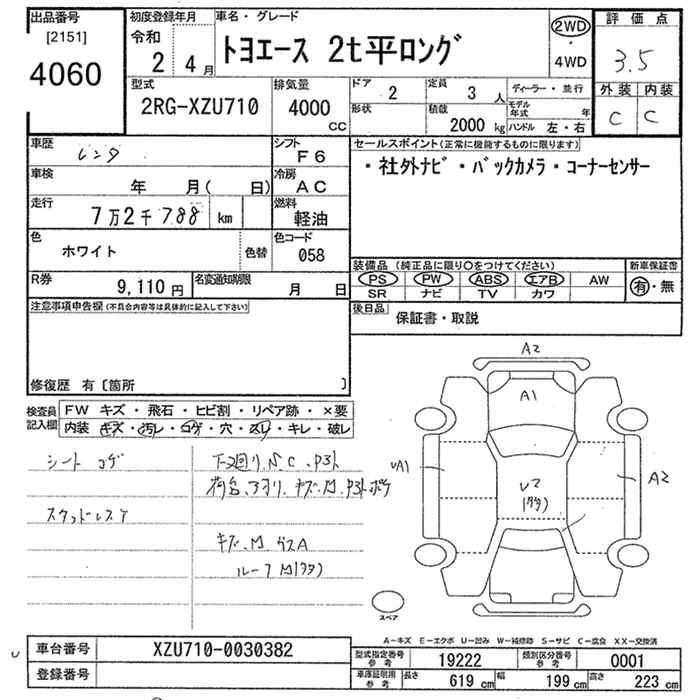 出品番号
[2151]
4060
初度登録年月
令和
2 4月
車名・グレード
トヨエース 2t平ロング
2WD
・
4WD
評価点
3.5
外装 内装
C C
型式
2RG-XZU710
排気量
4000
CC
ドア
2
定員
3 人
ディーラー・並行
形状
積載
2000 kg
モデル年式 年
ハンドル 左・右
車歴
レンタ
シフト
F6
車検
年 月( 日)
冷房
AC
走行
7万2千788 km
燃料
軽油
色
ホワイト
色替
色コード
058
R券
9,110円
名変通知期限
月 日
セールスポイント(正常に機能するものに限ります)
・社外ナビ・バックカメラ・コーナーセンサー
装備品 (純正品に限り○をつけてください)
PS PW ABS エアB AW
SR ナビ TV カワ
新車保証書
有・無
後日品
保証書・取説
注意事項申告欄(不具合内容等は具体的に記入して下さい)
修復歴 有〔箇所 〕
検査員記入欄
FW キズ・飛石・ヒビ割・リペア跡・×要
内装 キズ・汚レ・コゲ・穴・スリ・キレ・破レ
シート コゲ
スタッドレスタ
下回り
キズ
ルーフ
A2
A1
A2
スペア
A-キズ E-エクボ U-凹み W-補修跡 S-サビ C-腐食 XX-交換済
車台番号
XZU710-0030382
登録番号
型式指定番号 参考
19222
類別区分番号 参考
0001
車庫証明用 参考
長さ 619 cm
幅 199 cm
高さ 223 cm